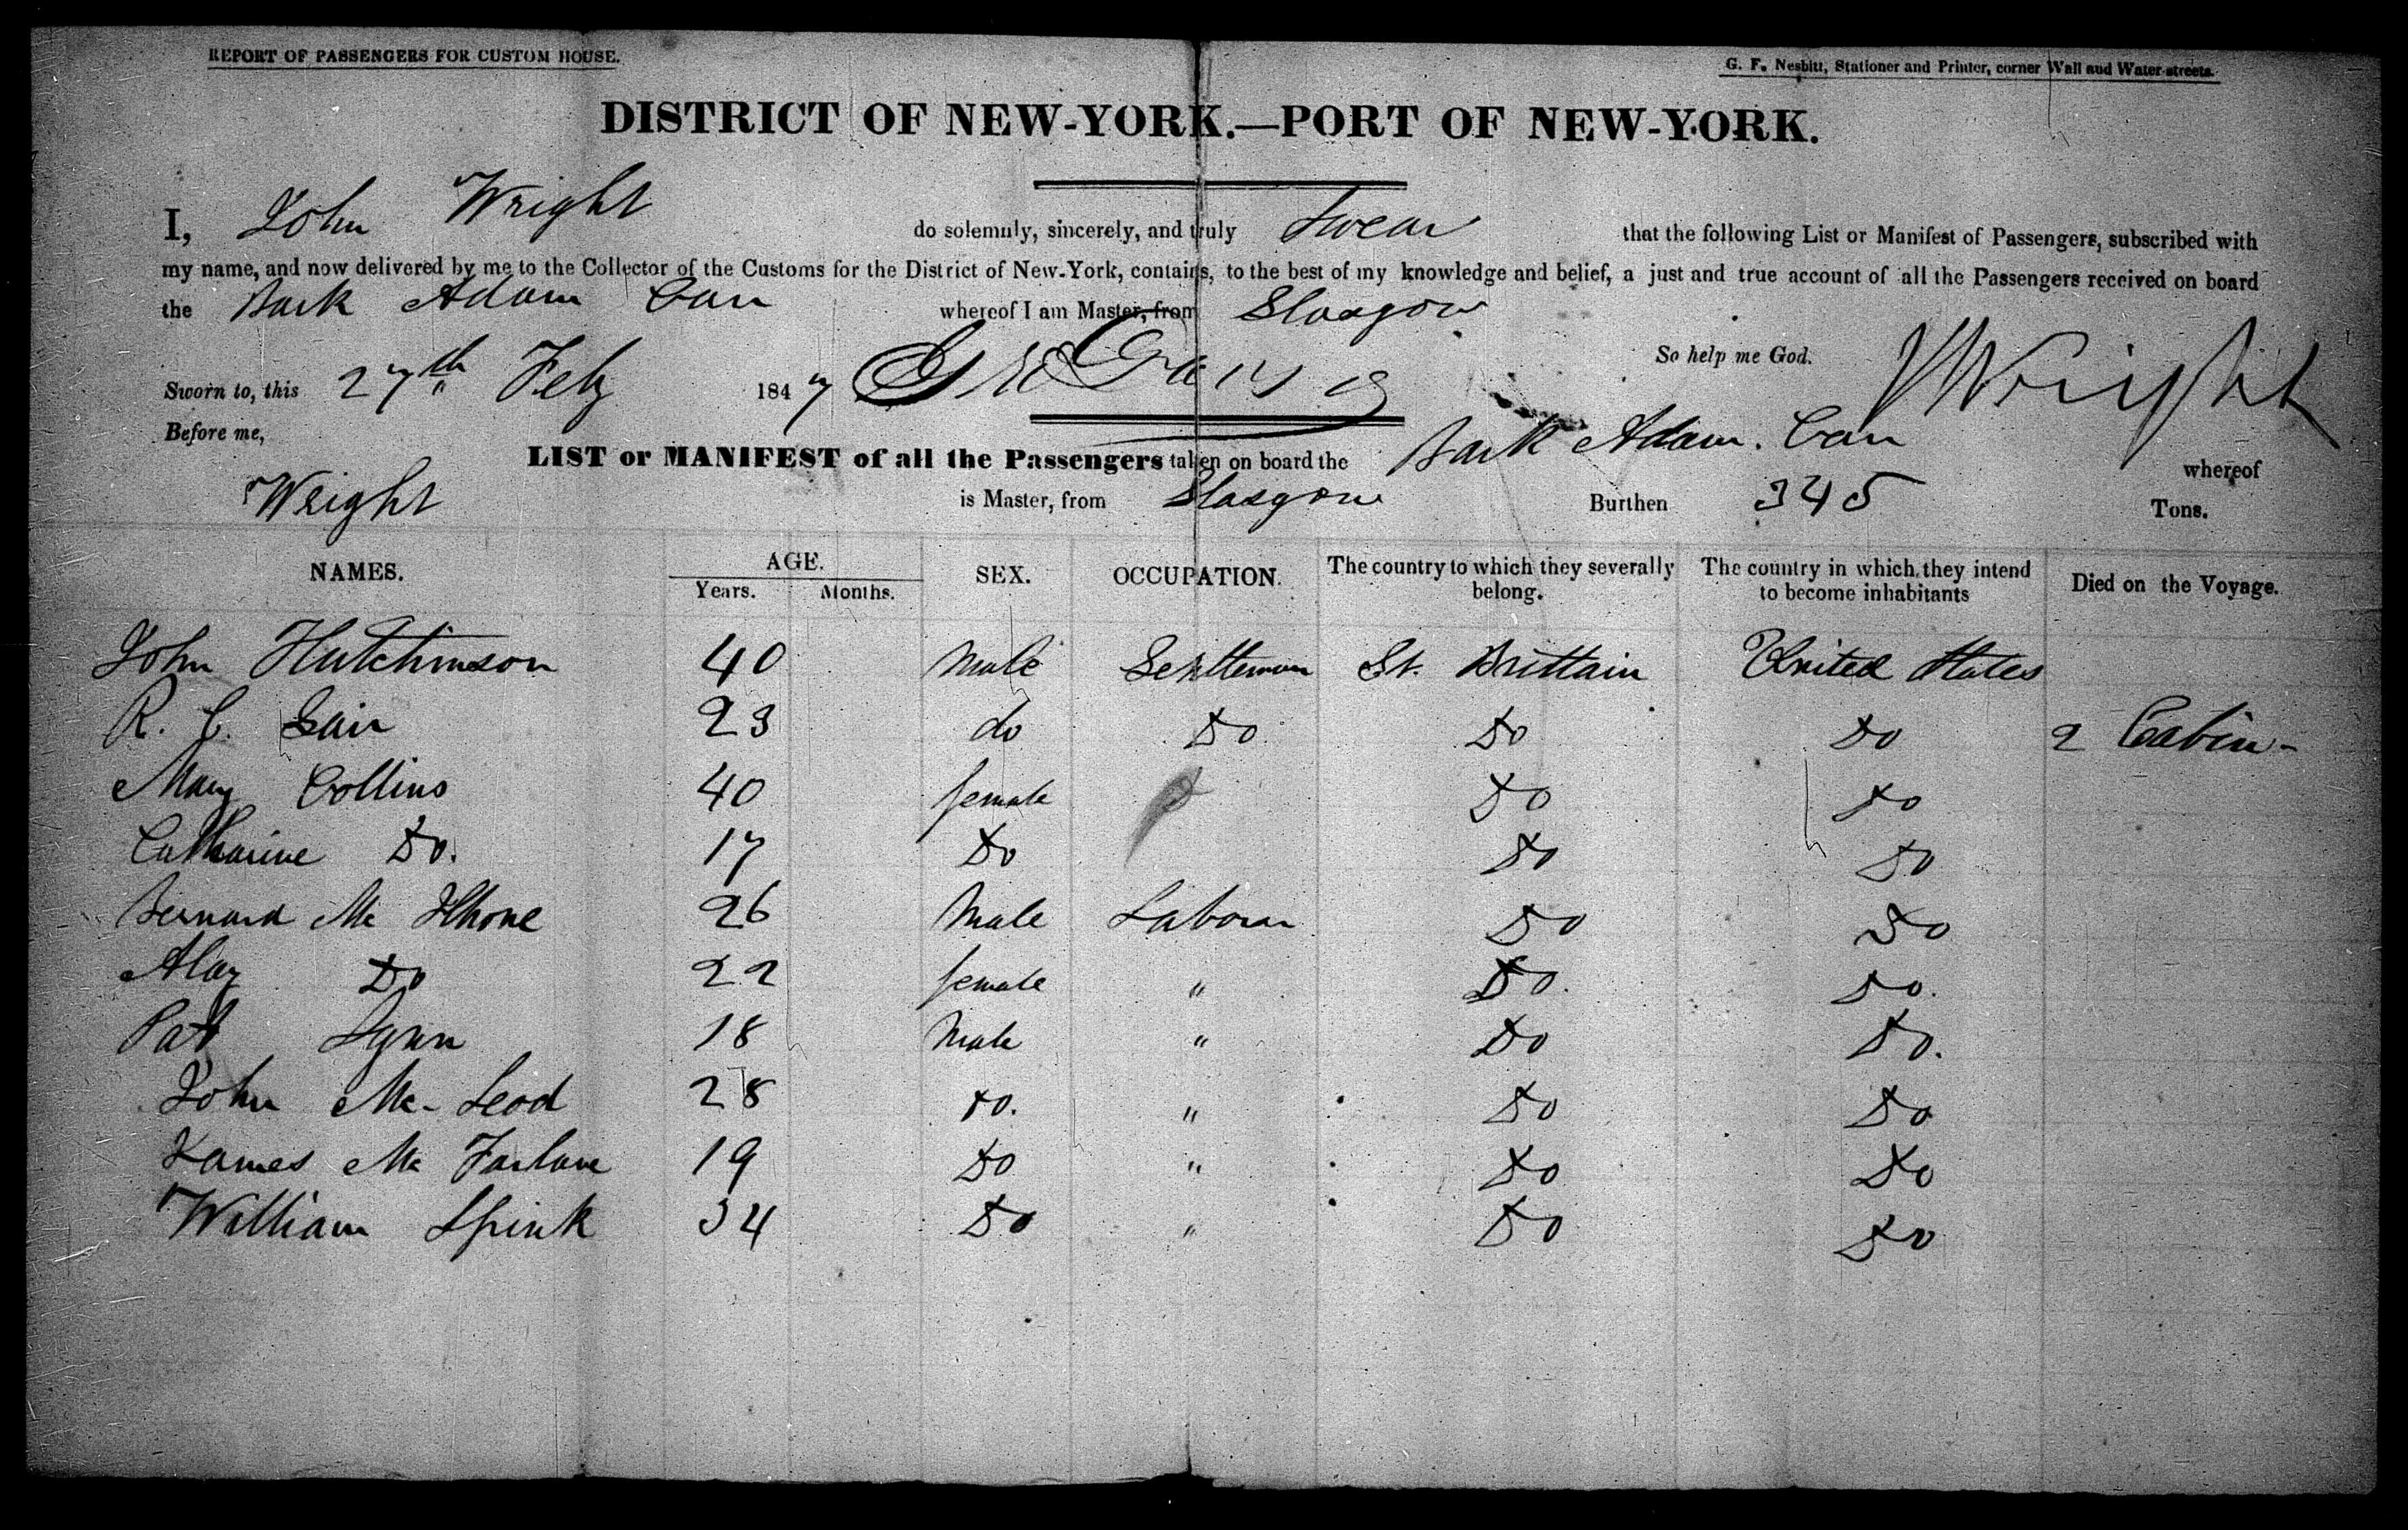 REPORT OF PASSENGERS FOR CUSTOM HOUSE.
G. F. Nesbitt, Stationer and Printer, corner Wall and Water-streets.
DISTRICT OF NEW-YORK.—PORT OF NEW-YORK.
I, John Wright do solemnly, sincerely, and truly Swear that the following List or Manifest of Passengers, subscribed with
my name, and now delivered by me to the Collector of the Customs for the District of New-York, contains, to the best of my knowledge and belief, a just and true account of all the Passengers received on board
the Bark Adam Carr whereof I am Master, from Glasgow
So help me God. J Wright
Sworn to, this 27th Feby 1847
Before me,
LIST or MANIFEST of all the Passengers taken on board the Bark Adam. Carr whereof
Wright is Master, from Glasgow Burthen 345 Tons.
NAMES. AGE. Years. Months. SEX. OCCUPATION. The country to which they severally belong. The country in which they intend to become inhabitants Died on the Voyage.
John Hutchinson 40 Male Gentleman Gt. Brittain United States
R. C. Gair 23 do Do Do Do 2 Cabin-
Mary Collins 40 female Do Do
Catharine Do. 17 Do Do Do
Bernard Mc Ilhone 26 Male Laborer Do Do
Alay Do 22 female " Do. Do.
Pat Lynn 18 Male " Do Do.
John Mc-Leod 28 Do. " Do Do
James Mc Farlane 19 Do " Do Do
William Spink 34 Do " Do Do